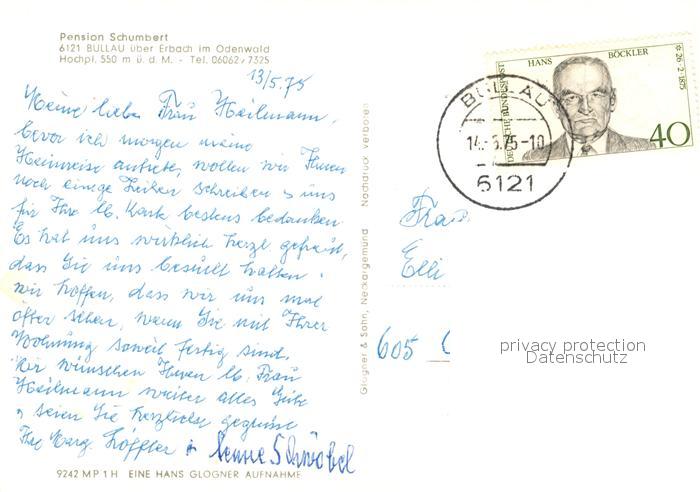 Pension Schumbert
6121 BULLAU über Erbach im Odenwald
Hochpl. 550 m ü. d. M. - Tel. 06062/7325
13/5.75
Meine liebe Frau Heilmann,
bevor ich morgen meine
Heimreise antrete, wollen wir Ihnen
noch einige Zeilen schreiben u uns
für Ihre lb. Karte bestens bedanken
Es hat uns wirklich herzl. gefreut,
dass Sie uns besucht hatten.
wir hoffen, dass wir uns mal
öfter sehen, wenn Sie mit Ihrer
Wohnung soweit fertig sind.
Wir wünschen Ihnen lb. Frau
Heilmann weiter alles Gute
u seien Sie herzlichst gegrüsst
Ihre Marg. Löffler u
9242 MP 1 H EINE HANS GLOGNER AUFNAHME
Glogner & Sohn, Neckargemünd Nachdruck verboten
BULLAU
14.-5.75-10
6121
DEUTSCHE BUNDESPOST
HANS BÖCKLER
* 26·2·1875
40
Frau
Elli
605
privacy protection
Datenschutz